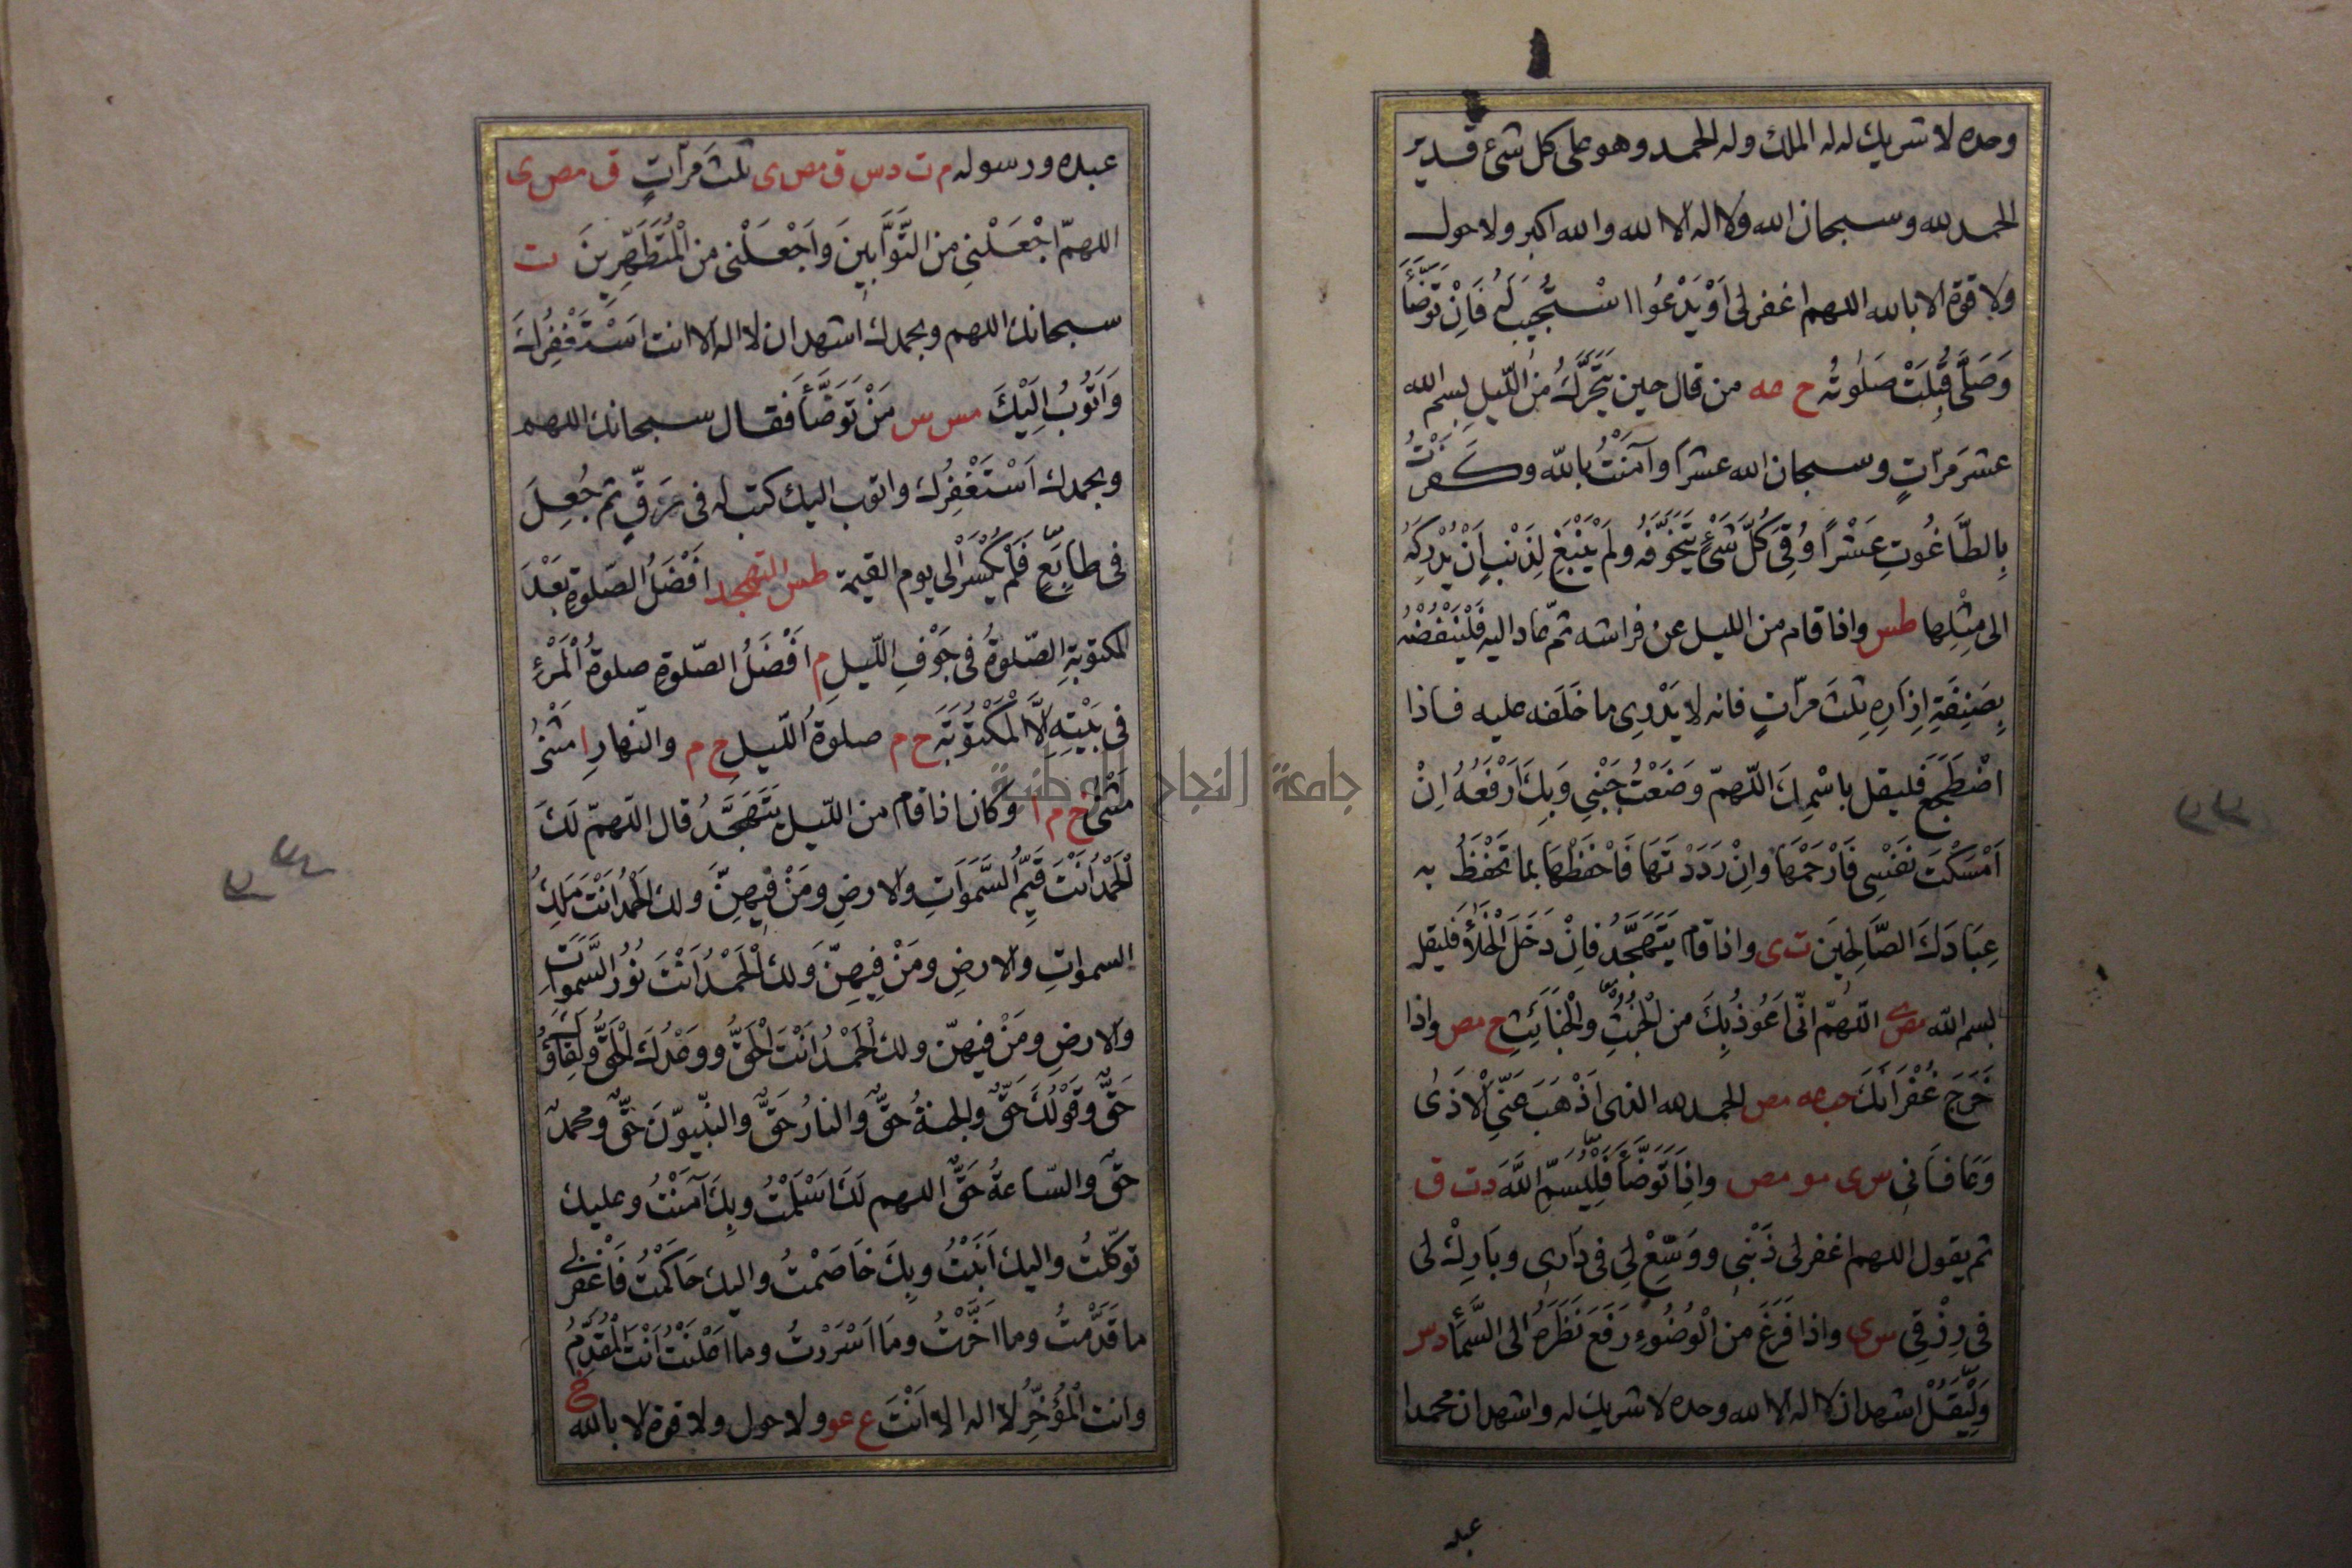 وحده لا شريك له له الملك وله الحمد وهو على كل شئ قدير
الحمد لله وسبحان الله ولا اله الا الله والله اكبر ولا حول
ولا قوة الا بالله اللهم اغفر لى اَوْ يَدْعُوا اسْتُجِيبَ لَهُ فَاِنْ تَوَضَّأَ
وَصَلَّى قُبِلَتْ صَلٰوتُه خ عه من قال حين يَتَحَرَّكُ من اللّيلِ بسم الله
عشرَ مرّاتٍ وسبحان الله عشرًا وآمَنْتُ بالله وكفرْتُ
بِالطَّاغُوتِ عَشْرًا وُقِىَ كُلَّ شَىْءٍ يَتَخَوَّفُهُ ولَمْ يَنْبَغِ لِذَنْبٍ اَنْ يُدْرِكَهُ
الى مِثْلِها طس واذا قام من الليل عن فراشه ثمّ عاد اليه فَلْيَنْفُضْهُ
بِصَنِفَةِ اِزَارِهِ ثلٰثَ مرّاتٍ فانه لا يَدْرِى ما خَلَفَه عليه فاذا
اضْطَجَعَ فَليقل باسْمِكَ اللّهمّ وَضَعْتُ جَنْبِى وَبِكَ اَرْفَعُهُ اِنْ
اَمْسَكْتَ نَفْسِى فَارْحَمْهَا وَاِنْ رَدَدْتَهَا فَاحْفَظْهَا بِمَا تَحْفَظُ به
عِبَادَكَ الصَّالِحِينَ ت ى واذا قام يَتَهَجَّدُ فاِنْ دَخَلَ الْخَلَأَ فليقل
بسم الله مص ى اللّهمّ انّى اَعُوذُ بِكَ من الْخُبُثِ والْخَبَائِثِ ع مص واذا
خَرَجَ غُفْرَانَكَ حب عه مص الحمد لله الذى اَذْهَبَ عَنّى الْاَذَى
وَعَافَانِى س ى مو مص واذا تَوَضَّأَ فَلْيُسَمِّ اللّٰهَ د ت ق
ثم يقول اللهم اغفر لى ذَنْبِى ووَسِّعْ لِى فى دَارِى وبَارِكْ لى
فى رِزْقِى س ى واذا فَرَغَ من الْوُضُوءِ رَفَعَ نَظَرَهُ الى السَّمَاءِ د س
وَلْيَقُلْ اشهد ان لا اله الا الله وحده لا شريك له واشهد ان محمدا
عبده
عبده ورسوله م ت د س ق مص ى ثلٰثَ مَرّاتٍ ق مص ى
اللهمّ اجْعَلْنِى من التَّوَّابِينَ وَاجْعَلْنِى من الْمُتَطَهِّرِينَ ت
سبحانك اللهم وبحمدك اشهد ان لا اله الا انت اَسْتَغْفِرُكَ
وَاَتُوبُ اِلَيْكَ مس س مَنْ تَوَضَّأَ فَقَال سبحانك اللهم
وبحمدك اَسْتَغْفِرُكَ واتوب اليك كتب له فى رَقٍّ ثم جُعِلَ
فى طابَعٍ فَلَمْ يُكْسَرْ الى يوم القيمة طس التهجد اَفْضَلُ الصّلٰوةِ بَعْدَ
المكتوبةِ الصّلٰوةُ فى جَوْفِ اللّيلِ م اَفْضَلُ الصّلٰوةِ صلوةُ الْمَرْءِ
فى بَيْتِهِ اِلَّا الْمَكْتُوبَةَ خ م صلوةُ اللّيلِ خ م والنّهارِ ا مَثْنَى
مَثْنَى خ م ا وكان اذا قام من اللّيل يَتَهَجَّدُ قال اللّهمّ لَكَ
الْحَمْدُ اَنْتَ قَيِّمُ السَّمٰوَاتِ والارضِ ومَنْ فِيهِنَّ ولك الحَمْدُ اَنْتَ مَلِكُ
السموات والارضِ ومَنْ فِيهِنّ وَلك الْحَمْدُ اَنْتَ نُورُ السَّمٰوٰاتِ
والارضِ ومَنْ فيهنّ ولك الحَمْدُ اَنْتَ الْحَقُّ ووَعْدُكَ الْحَقُّ ولِقَاؤُكَ
حَقٌّ وَقَوْلُكَ حَقٌّ والجنةُ حَقٌّ والنارُ حَقٌّ والنّبِيّونَ حَقٌّ ومحمدٌ
حَقٌّ والسّاعةُ حَقٌّ اللهم لَكَ اَسْلَمْتُ وبِكَ آمَنْتُ وعليك
توكّلتُ واليك اَنَبْتُ وبِكَ خَاصَمْتُ واليك حَاكَمْتُ فَاغْفِرْ لى
ما قَدَّمْتُ وما اَخَّرْتُ ومَا اَسْرَرْتُ وما اَعْلَنْتُ اَنْتَ الْمُقَدِّمُ
وانت الْمُؤَخِّرُ لا اله الا اَنْتَ ع عو ولا حول ولا قوة الا بالله خ
جامعة النجاح الوطنية